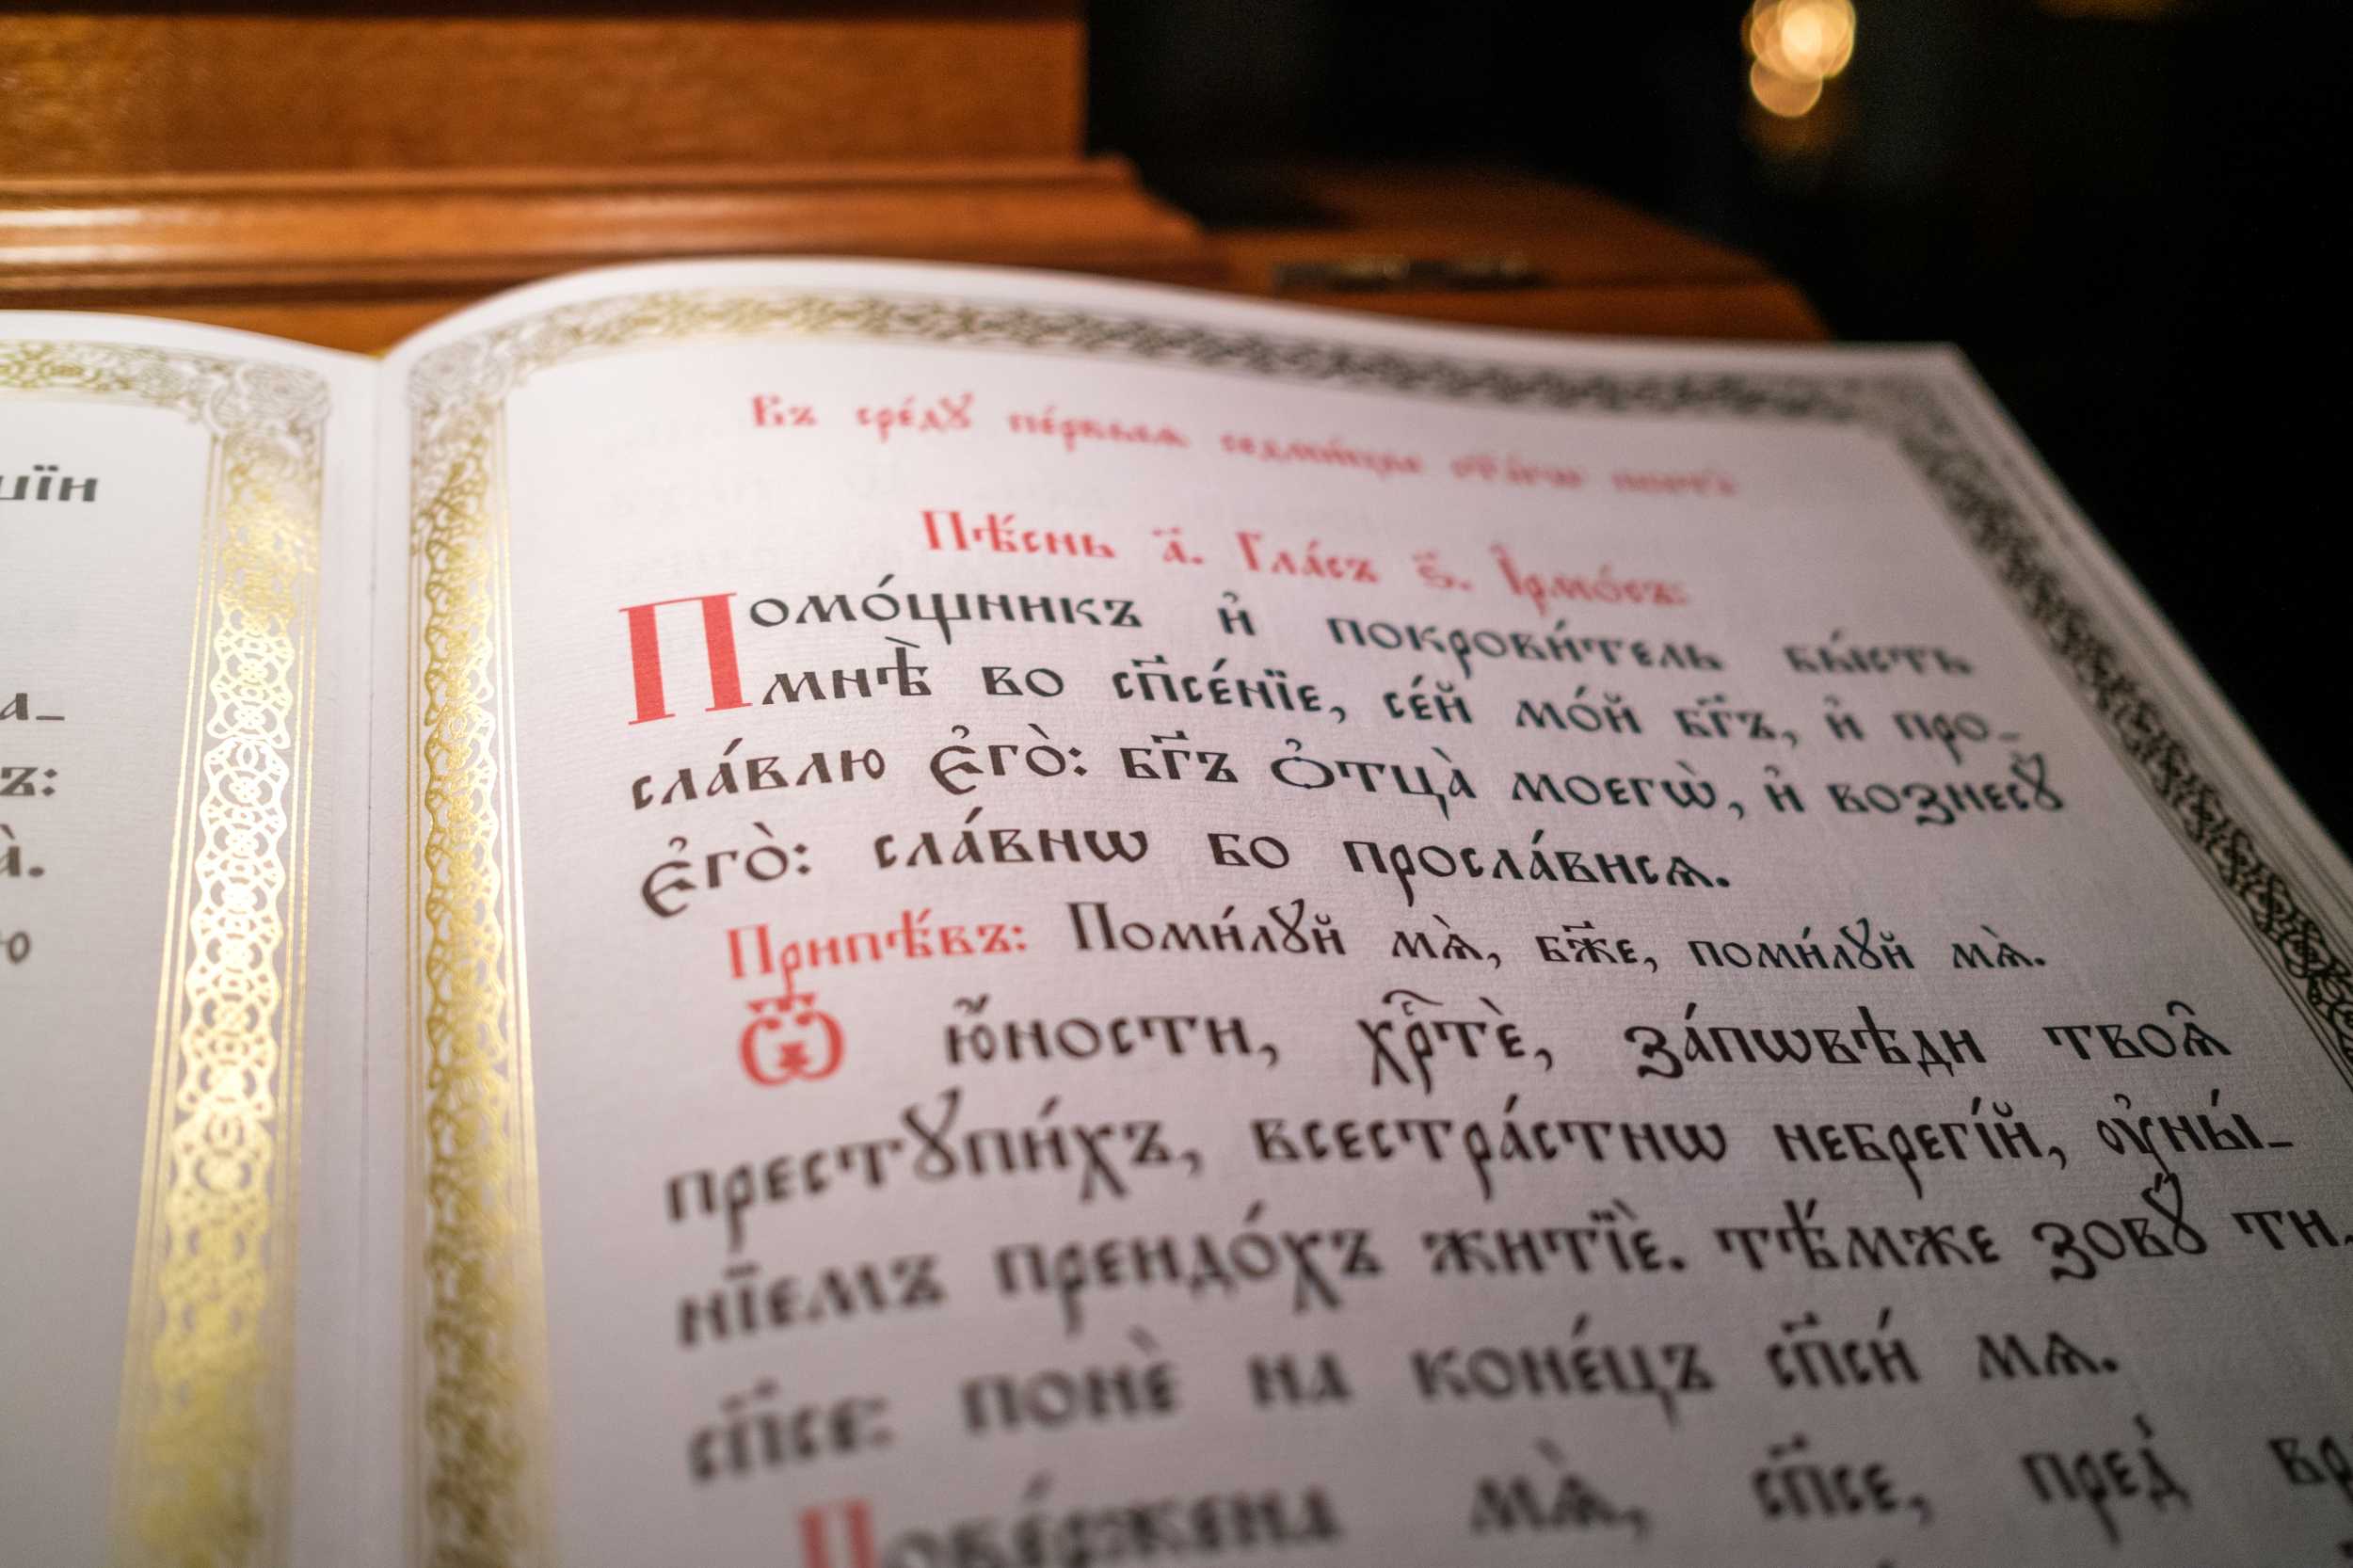 шїи
а_
ъ:
а̀.
ю
Въ сре́дꙋ пе́рвыѧ седми́цы ст҃а́гѡ поста̀
Пѣ́снь а҃. Гла́съ ѕ҃. І҆рмо́съ:
Помо́щникъ и҆ покрови́тель бы́сть
мнѣ̀ во сп҃се́нїе, се́й мо́й бг҃ъ, и҆ про_
сла́влю є҆го̀: бг҃ъ ѻ҆тца̀ моегѡ̀, и҆ вознесꙋ̀
є҆го̀: сла́внѡ бо просла́висѧ.
Припѣ́въ: Поми́лꙋй мѧ̀, бж҃е, поми́лꙋй мѧ̀.
Ѿ ю҆́ности, хрⷭ҇тѐ, за́пѡвѣди твоѧ̑
престꙋпи́хъ, всестра́стнѡ небрегі́й, ᲂу҆ны́_
нїемъ преидо́хъ житїѐ. тѣ́мже зовꙋ́ ти,
сп҃се: понѐ на коне́цъ сп҃си́ мѧ.
Пове́ржена мѧ̀, сп҃се, пред̾